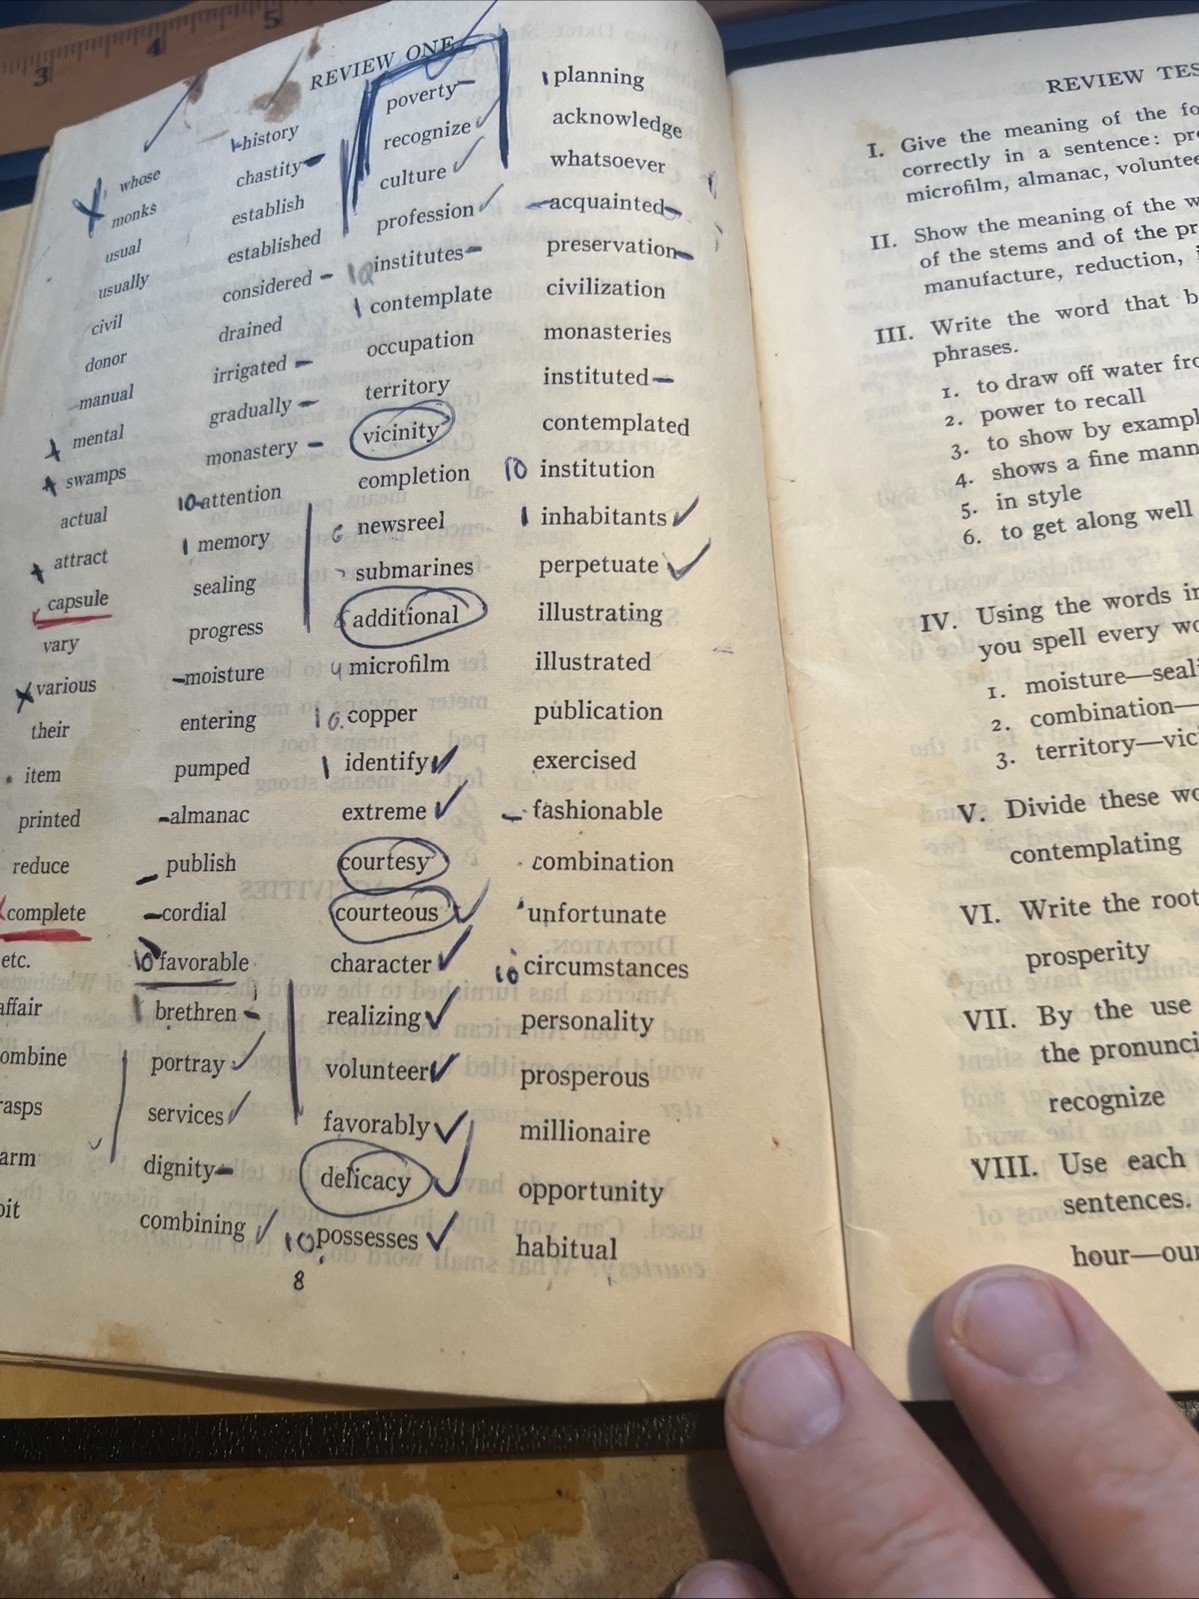 REVIEW ONE
whose
monks
usual
usually
civil
donor
manual
mental
swamps
actual
attract
capsule
vary
various
their
item
printed
reduce
complete
etc.
affair
ombine
rasps
arm
oit
history
chastity
establish
established
considered
drained
irrigated
gradually
monastery
10 attention
1 memory
sealing
progress
moisture
entering
pumped
almanac
publish
cordial
10 favorable
1 brethren
portray
services
dignity
combining
poverty
recognize
culture
profession
10 institutes
1 contemplate
occupation
territory
vicinity
completion
newsreel
submarines
additional
microfilm
10. copper
1 identify
extreme
courtesy
courteous
character
realizing
volunteer
favorably
delicacy
10 possesses
8
1 planning
acknowledge
whatsoever
acquainted
preservation
civilization
monasteries
instituted
contemplated
10 institution
1 inhabitants
perpetuate
illustrating
illustrated
publication
exercised
fashionable
combination
unfortunate
10 circumstances
personality
prosperous
millionaire
opportunity
habitual
REVIEW TES
I. Give the meaning of the fo
correctly in a sentence: pre
microfilm, almanac, voluntee
II. Show the meaning of the w
of the stems and of the pr
manufacture, reduction, i
III. Write the word that b
phrases.
1. to draw off water fro
2. power to recall
3. to show by exampl
4. shows a fine mann
5. in style
6. to get along well
IV. Using the words in
you spell every wo
1. moisture—seali
2. combination—
3. territory—vici
V. Divide these wo
contemplating
VI. Write the root
prosperity
VII. By the use
the pronunci
recognize
VIII. Use each
sentences.
hour—our